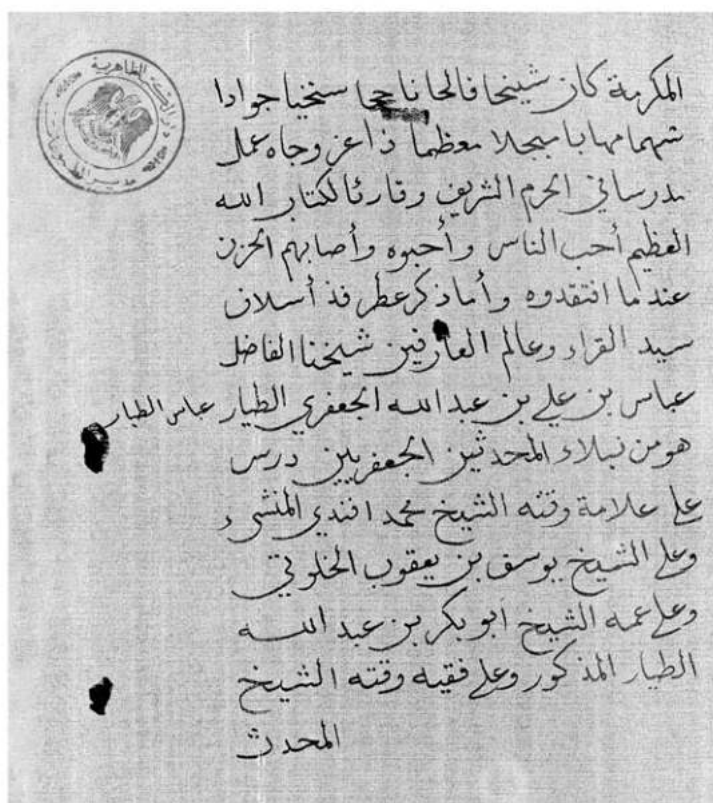 دار الكتب الظاهرية
المكرمة كان شيخا فالحا ناجحا سخيا جوادا
شهما مهابا مبجلا معظما ذا عز وجاه عمل
مدرسا في الحرم الشريف وقارئا لكتاب الله
العظيم أحب الناس وأحبوه وأصابهم الحزن
عندما افتقدوه وأما ذكر عطر فذ أسلاف
سيد القراء وعالم العارفين شيخنا الفاضل
عباس بن علي بن عبد الله الجعفري الطيار عباس الطيار
هو من نبلاء المحدثين الجعفريين درس
على علامة وقته الشيخ محمد افندي المنشيء
وعلى الشيخ يوسف بن يعقوب الخلوتي
وعلى عمه الشيخ ابو بكر بن عبد الله
الطيار المذكور وعلى فقيه وقته الشيخ
المحدث